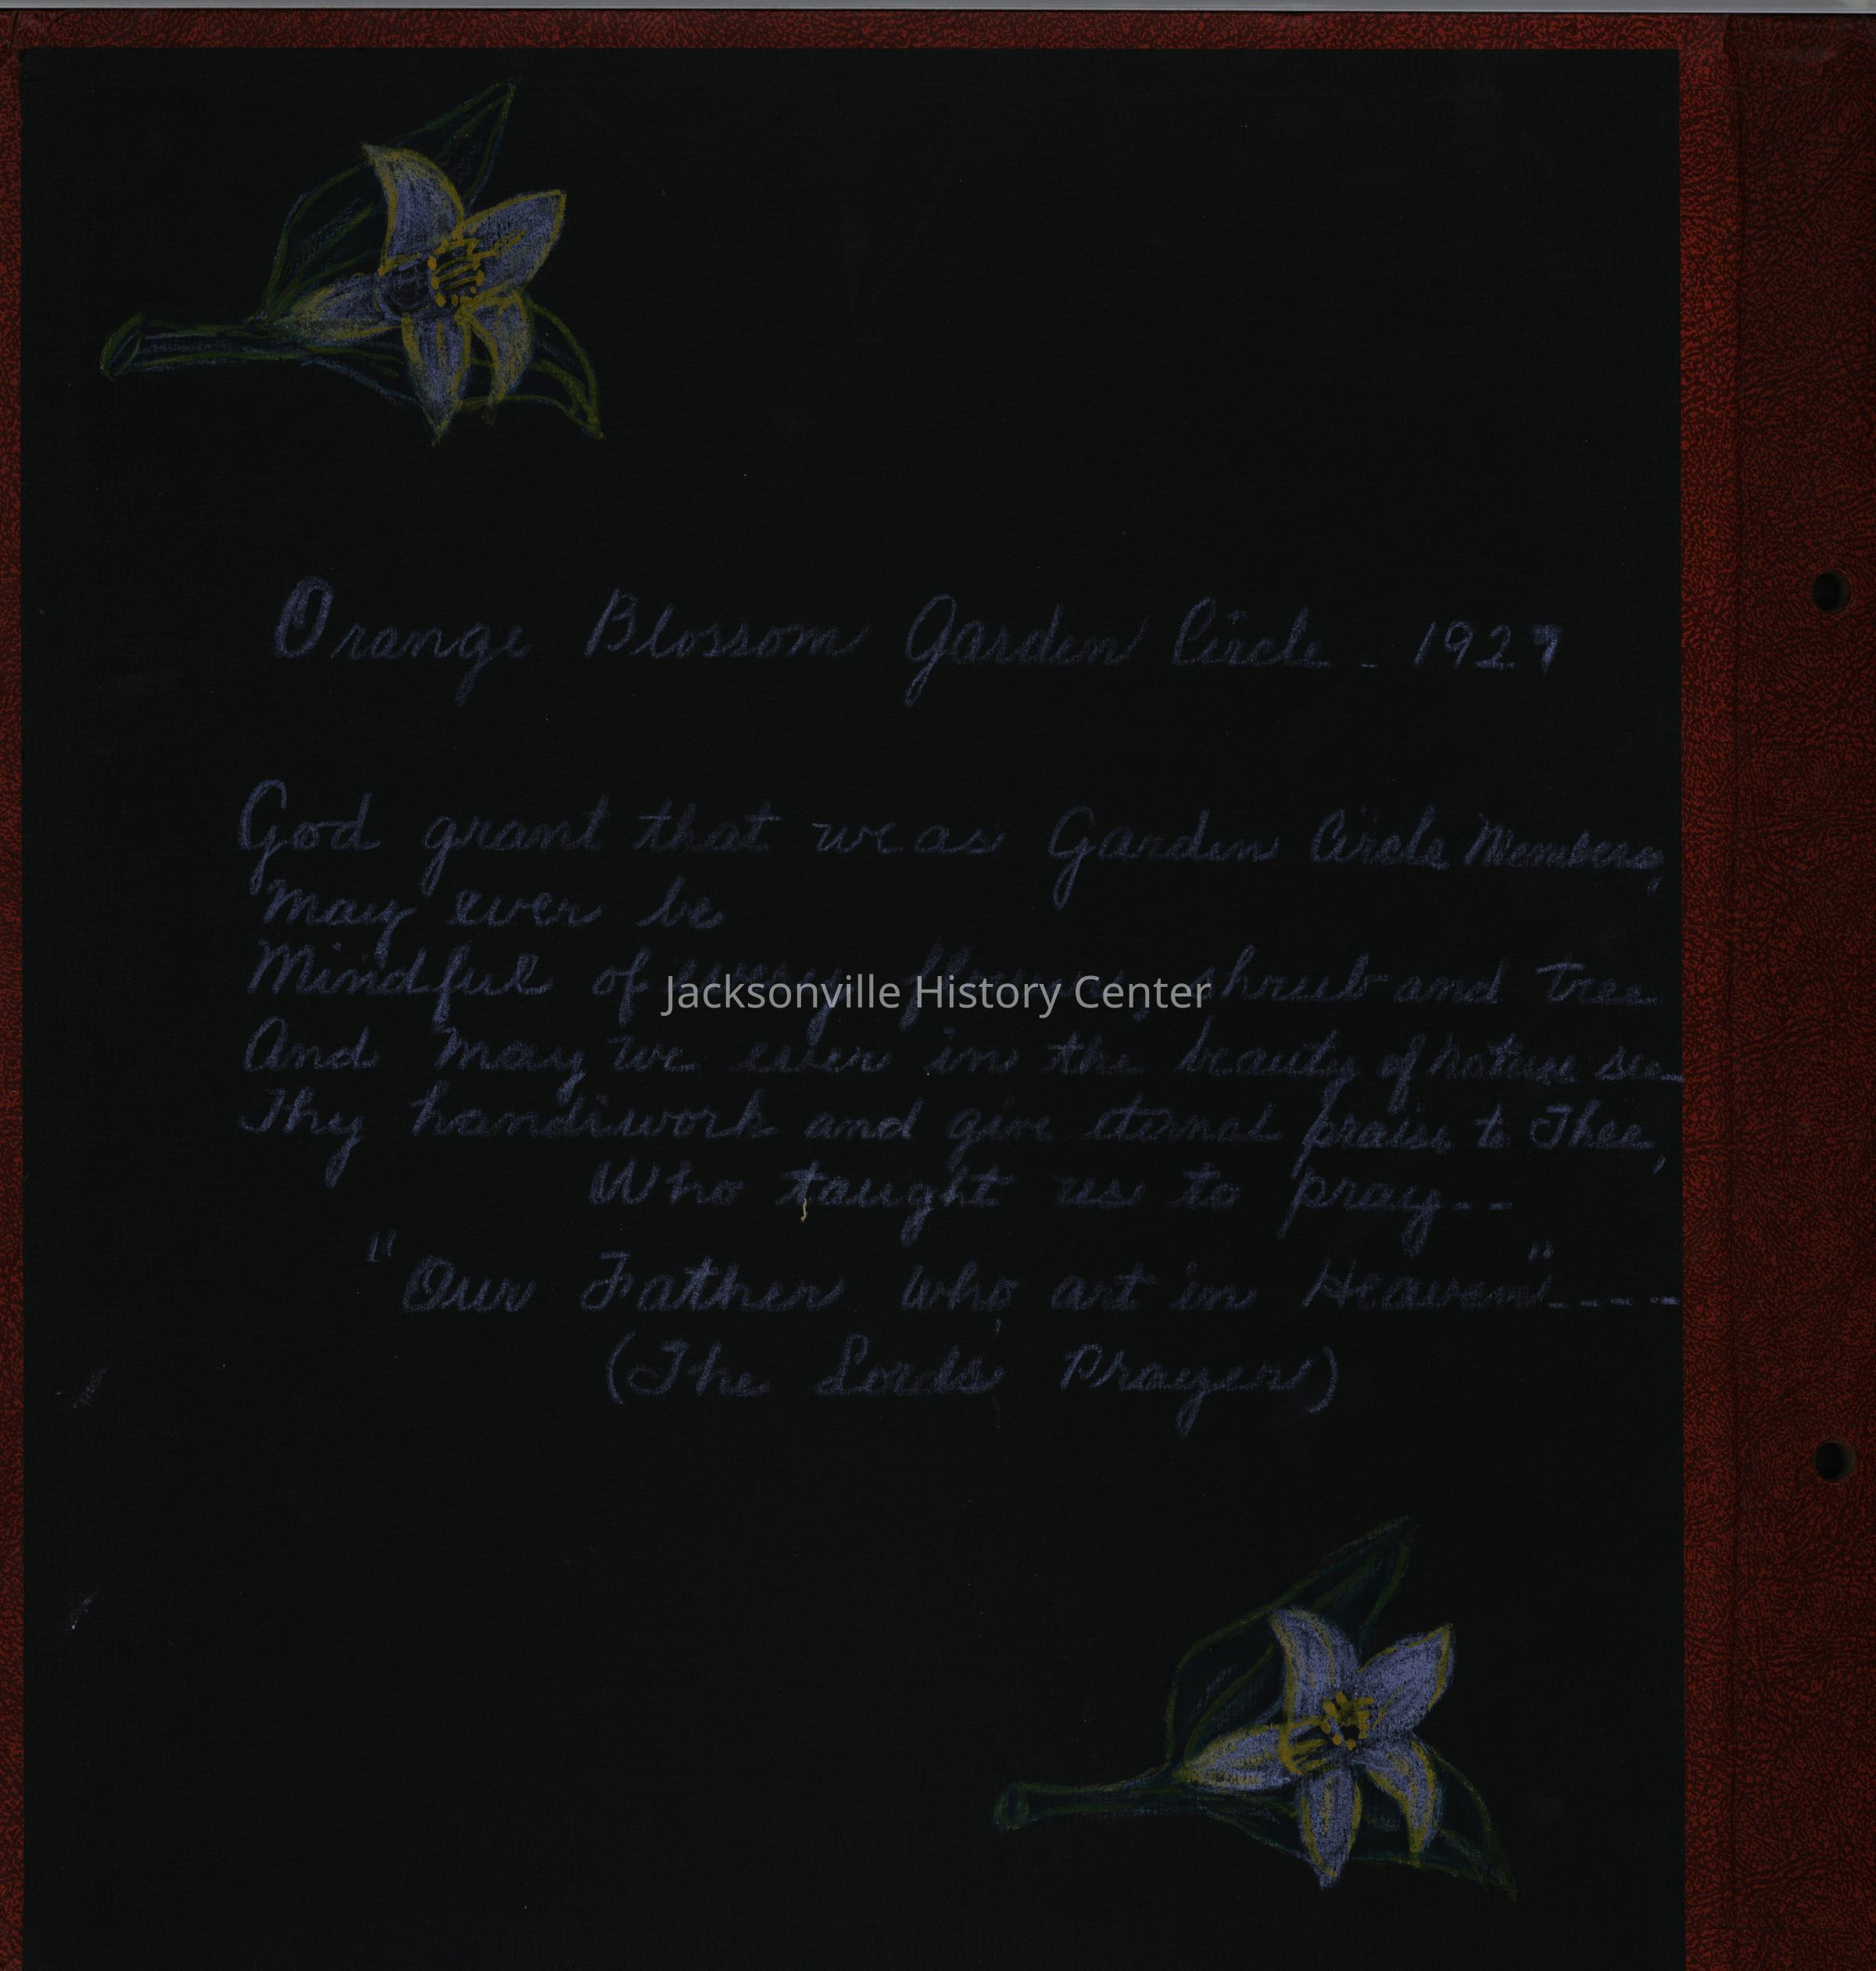 Orange Blossom Garden Circle - 1927
God grant that we as Garden Circle Members,
May ever be
Mindful of every flower, shrub and tree
Jacksonville History Center
And may we ever in the beauty of nature see
Thy handiwork and give eternal praise to Thee,
Who taught us to pray--
"Our Father who art in Heaven"----
(The Lord's Prayer)